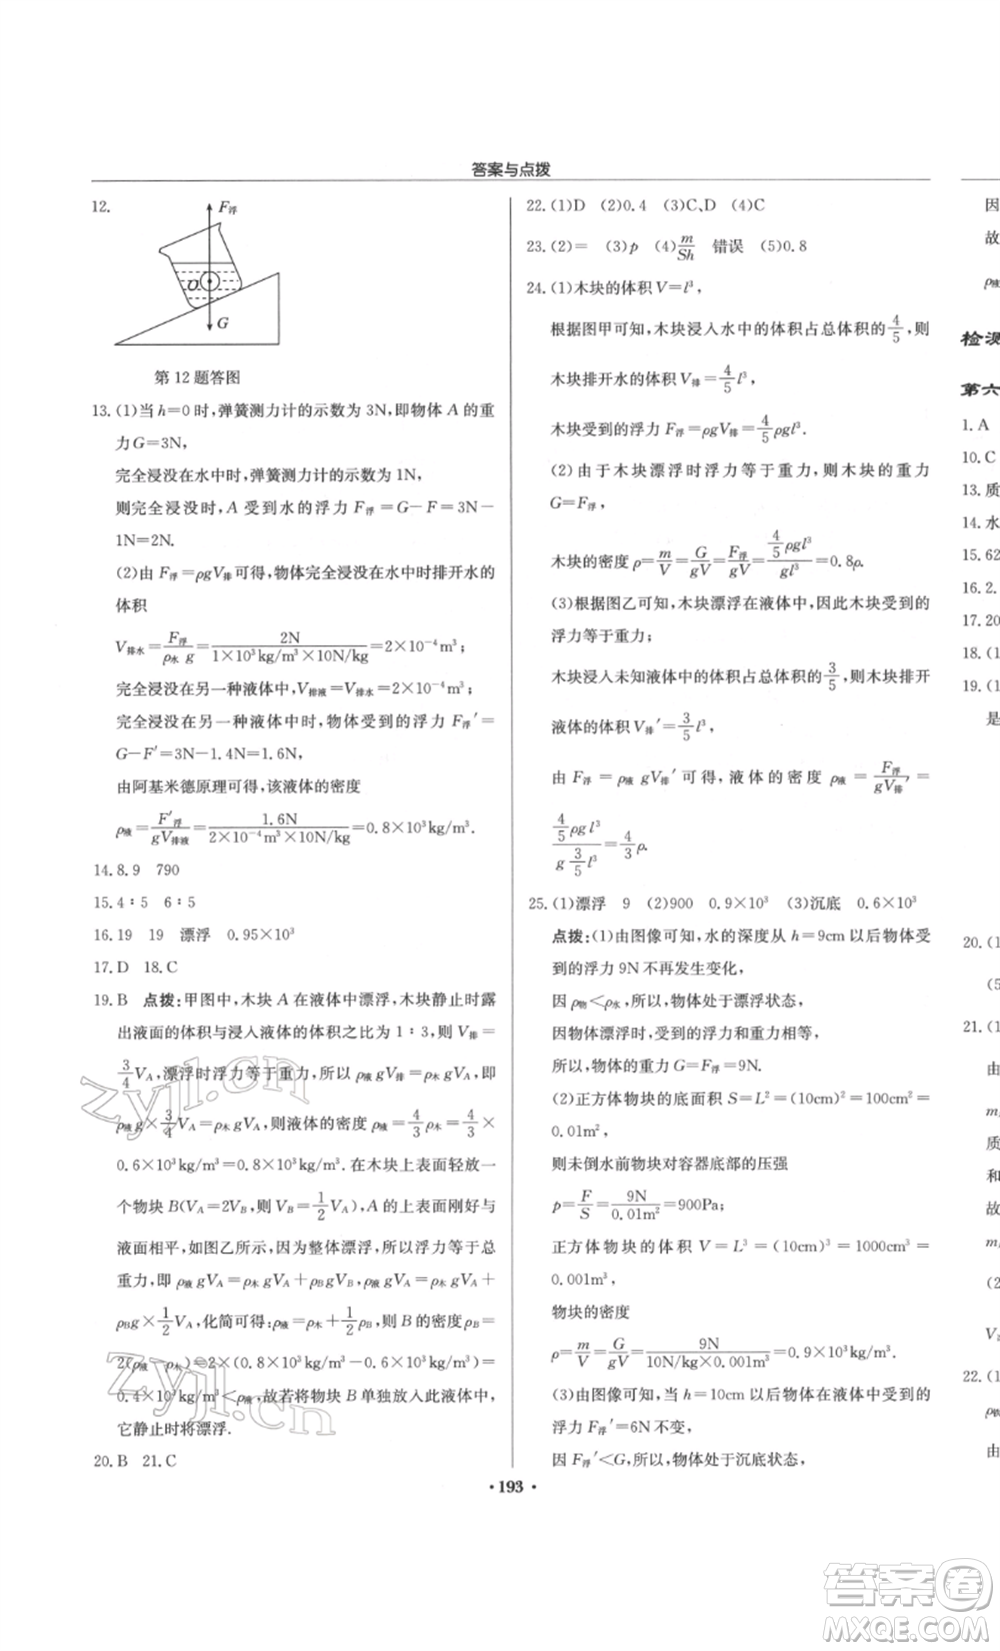 答案与点拨
12.
F浮
O
G
第12题答图
13.(1)当h=0时,弹簧测力计的示数为3N,即物体A的重
力G=3N,
完全浸没在水中时,弹簧测力计的示数为1N,
则完全浸没时,A受到水的浮力F浮=G-F=3N-
1N=2N.
(2)由F浮=ρgV排可得,物体完全浸没在水中时排开水的
体积
V排水=F浮/(ρ水 g)=2N/(1×10³kg/m³×10N/kg)=2×10⁻⁴m³;
完全浸没在另一种液体中,V排液=V排水=2×10⁻⁴m³;
完全浸没在另一种液体中时,物体受到的浮力F浮′=
G-F′=3N-1.4N=1.6N,
由阿基米德原理可得,该液体的密度
ρ液=F′浮/(gV排液)=1.6N/(2×10⁻⁴m³×10N/kg)=0.8×10³kg/m³.
14.8.9 790
15.4∶5 6∶5
16.19 19 漂浮 0.95×10³
17.D 18.C
19.B 点拨:甲图中,木块A在液体中漂浮,木块静止时露
出液面的体积与浸入液体的体积之比为1∶3,则V排=
3/4 VA,漂浮时浮力等于重力,所以ρ液gV排=ρ木gVA,即
ρ液g×3/4 VA=ρ木gVA,则液体的密度ρ液=4/3 ρ木=4/3×
0.6×10³kg/m³=0.8×10³kg/m³.在木块上表面轻放一
个物块B(VA=2VB,则VB=1/2 VA),A的上表面刚好与
液面相平,如图乙所示,因为整体漂浮,所以浮力等于总
重力,即ρ液gVA=ρ木gVA+ρBgVB,即ρ液gVA=ρ木gVA+
ρBg×1/2 VA,化简可得:ρ液=ρ木+1/2 ρB,则B的密度ρB=
2(ρ液-ρ木)=2×(0.8×10³kg/m³-0.6×10³kg/m³)=
0.4×10³kg/m³<ρ液,故若将物块B单独放入液体中,
它静止时将漂浮.
20.B 21.C
22.(1)D (2)0.4 (3)C、D (4)C
23.(2)= (3)p (4)m/Sh 错误 (5)0.8
24.(1)木块的体积V=l³,
根据图甲可知,木块浸入水中的体积占总体积的4/5,则
木块排开水的体积V排=4/5 l³,
木块受到的浮力F浮=ρgV排=4/5 ρgl³.
(2)由于木块漂浮时浮力等于重力,则木块的重力
G=F浮,
木块的密度ρ=m/V=G/gV=F浮/gV=(4/5 ρgl³)/gl³=0.8ρ.
(3)根据图乙可知,木块漂浮在液体中,因此木块受到的
浮力等于重力;
木块浸入未知液体中的体积占总体积的3/5,则木块排开
液体的体积V排′=3/5 l³,
由F浮=ρ液gV排′可得,液体的密度ρ液=F浮/gV排′=
(4/5 ρg l³)/(g 3/5 l³)=4/3 ρ.
25.(1)漂浮 9 (2)900 0.9×10³ (3)沉底 0.6×10³
点拨:(1)由图像可知,水的深度从h=9cm以后物体受
到的浮力9N不再发生变化,
因ρ物<ρ水,所以,物体处于漂浮状态,
因物体漂浮时,受到的浮力和重力相等,
所以,物体的重力G=F浮=9N.
(2)正方体物块的底面积S=L²=(10cm)²=100cm²=
0.01m²
则未倒水前物块对容器底部的压强
p=F/S=9N/0.01m²=900Pa;
正方体物块的体积V=L³=(10cm)³=1000cm³=
0.001m³
物块的密度
ρ=m/V=G/gV=9N/(10N/kg×0.001m³)=0.9×10³kg/m³.
(3)由图像可知,当h=10cm以后物体在液体中受到的
浮力F浮′=6N不变,
因F浮′<G,所以,物体处于沉底状态,
• 193 •
因
故
ρ液
检测
第六
1.A
10.C
13.质
14.水
15.62
16.2.
17.20
18.(1
19.(1
是
20.(1
(5
21.(1
由
m
质
和
故
m
(2
V
22.(1
ρ铁
由
zyjl.cn
zyjl.cn
答案卷
MXQE.COM